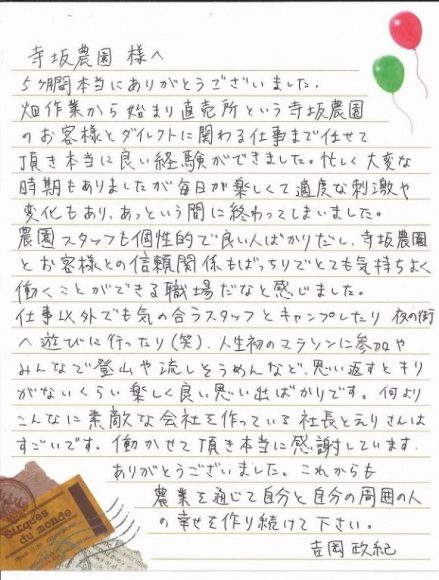 寺坂農園 様へ
5ヶ月間本当にありがとうございました.
畑作業から始まり直売所という寺坂農園
のお客様とダイレクトに関わる仕事まで任せて
頂き本当に良い経験ができました。忙しく大変な
時期もありましたが毎日が楽しくて適度な刺激や
変化もあり、あっという間に終わってしまいました。
農園スタッフも個性的で良い人ばかりだし、寺坂農園
とお客様との信頼関係もばっちりでとても気持ちよく
働くことができる職場だなと感じました。
仕事以外でも気の合うスタッフとキャンプしたり 夜の街
へ遊びに行ったり(笑)、人生初のマラソンに参加や
みんなで登山や流しそうめんなど、思い返すとキリ
がないくらい楽しく良い思い出ばかりです。何より
こんなに素敵な会社を作っている社長とえりさんは
すごいです。働かせて頂き本当に感謝しています.
ありがとうございました。これからも
農業を通じて自分と自分の周囲の人
の幸せを作り続けて下さい。
吉岡 政紀
Cirques
du monde